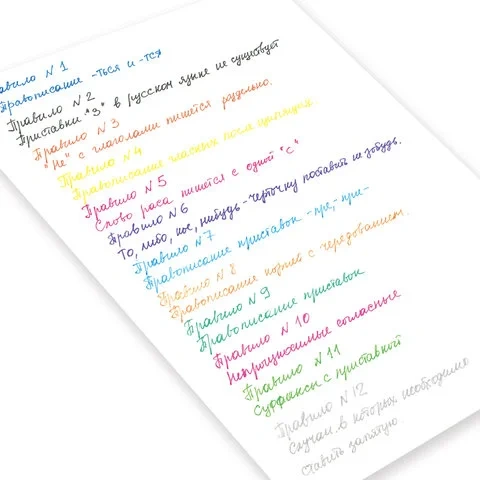 авило N 1
Правописание -ться и -тся
Правило N 2
Приставки "З" в русском языке не существует
Правило N 3
"Не" с глаголами пишется раздельно.
Правило N 4
Правописание гласных после шипящих.
Правило N 5
Слово раса пишется с одной "с"
Правило N 6
То, либо, кое, нибудь - черточку поставить не забудь.
Правило N 7
Правописание приставок -пре,- при-
Правило N 8
Правописание корней с чередованием.
Правило N 9
Правописание приставок
Правило N 10
Непроизносимые согласные
Правило N 11
Суффиксы с приставкой
Правило N 12
Случаи в которых необходимо
ставить запятую